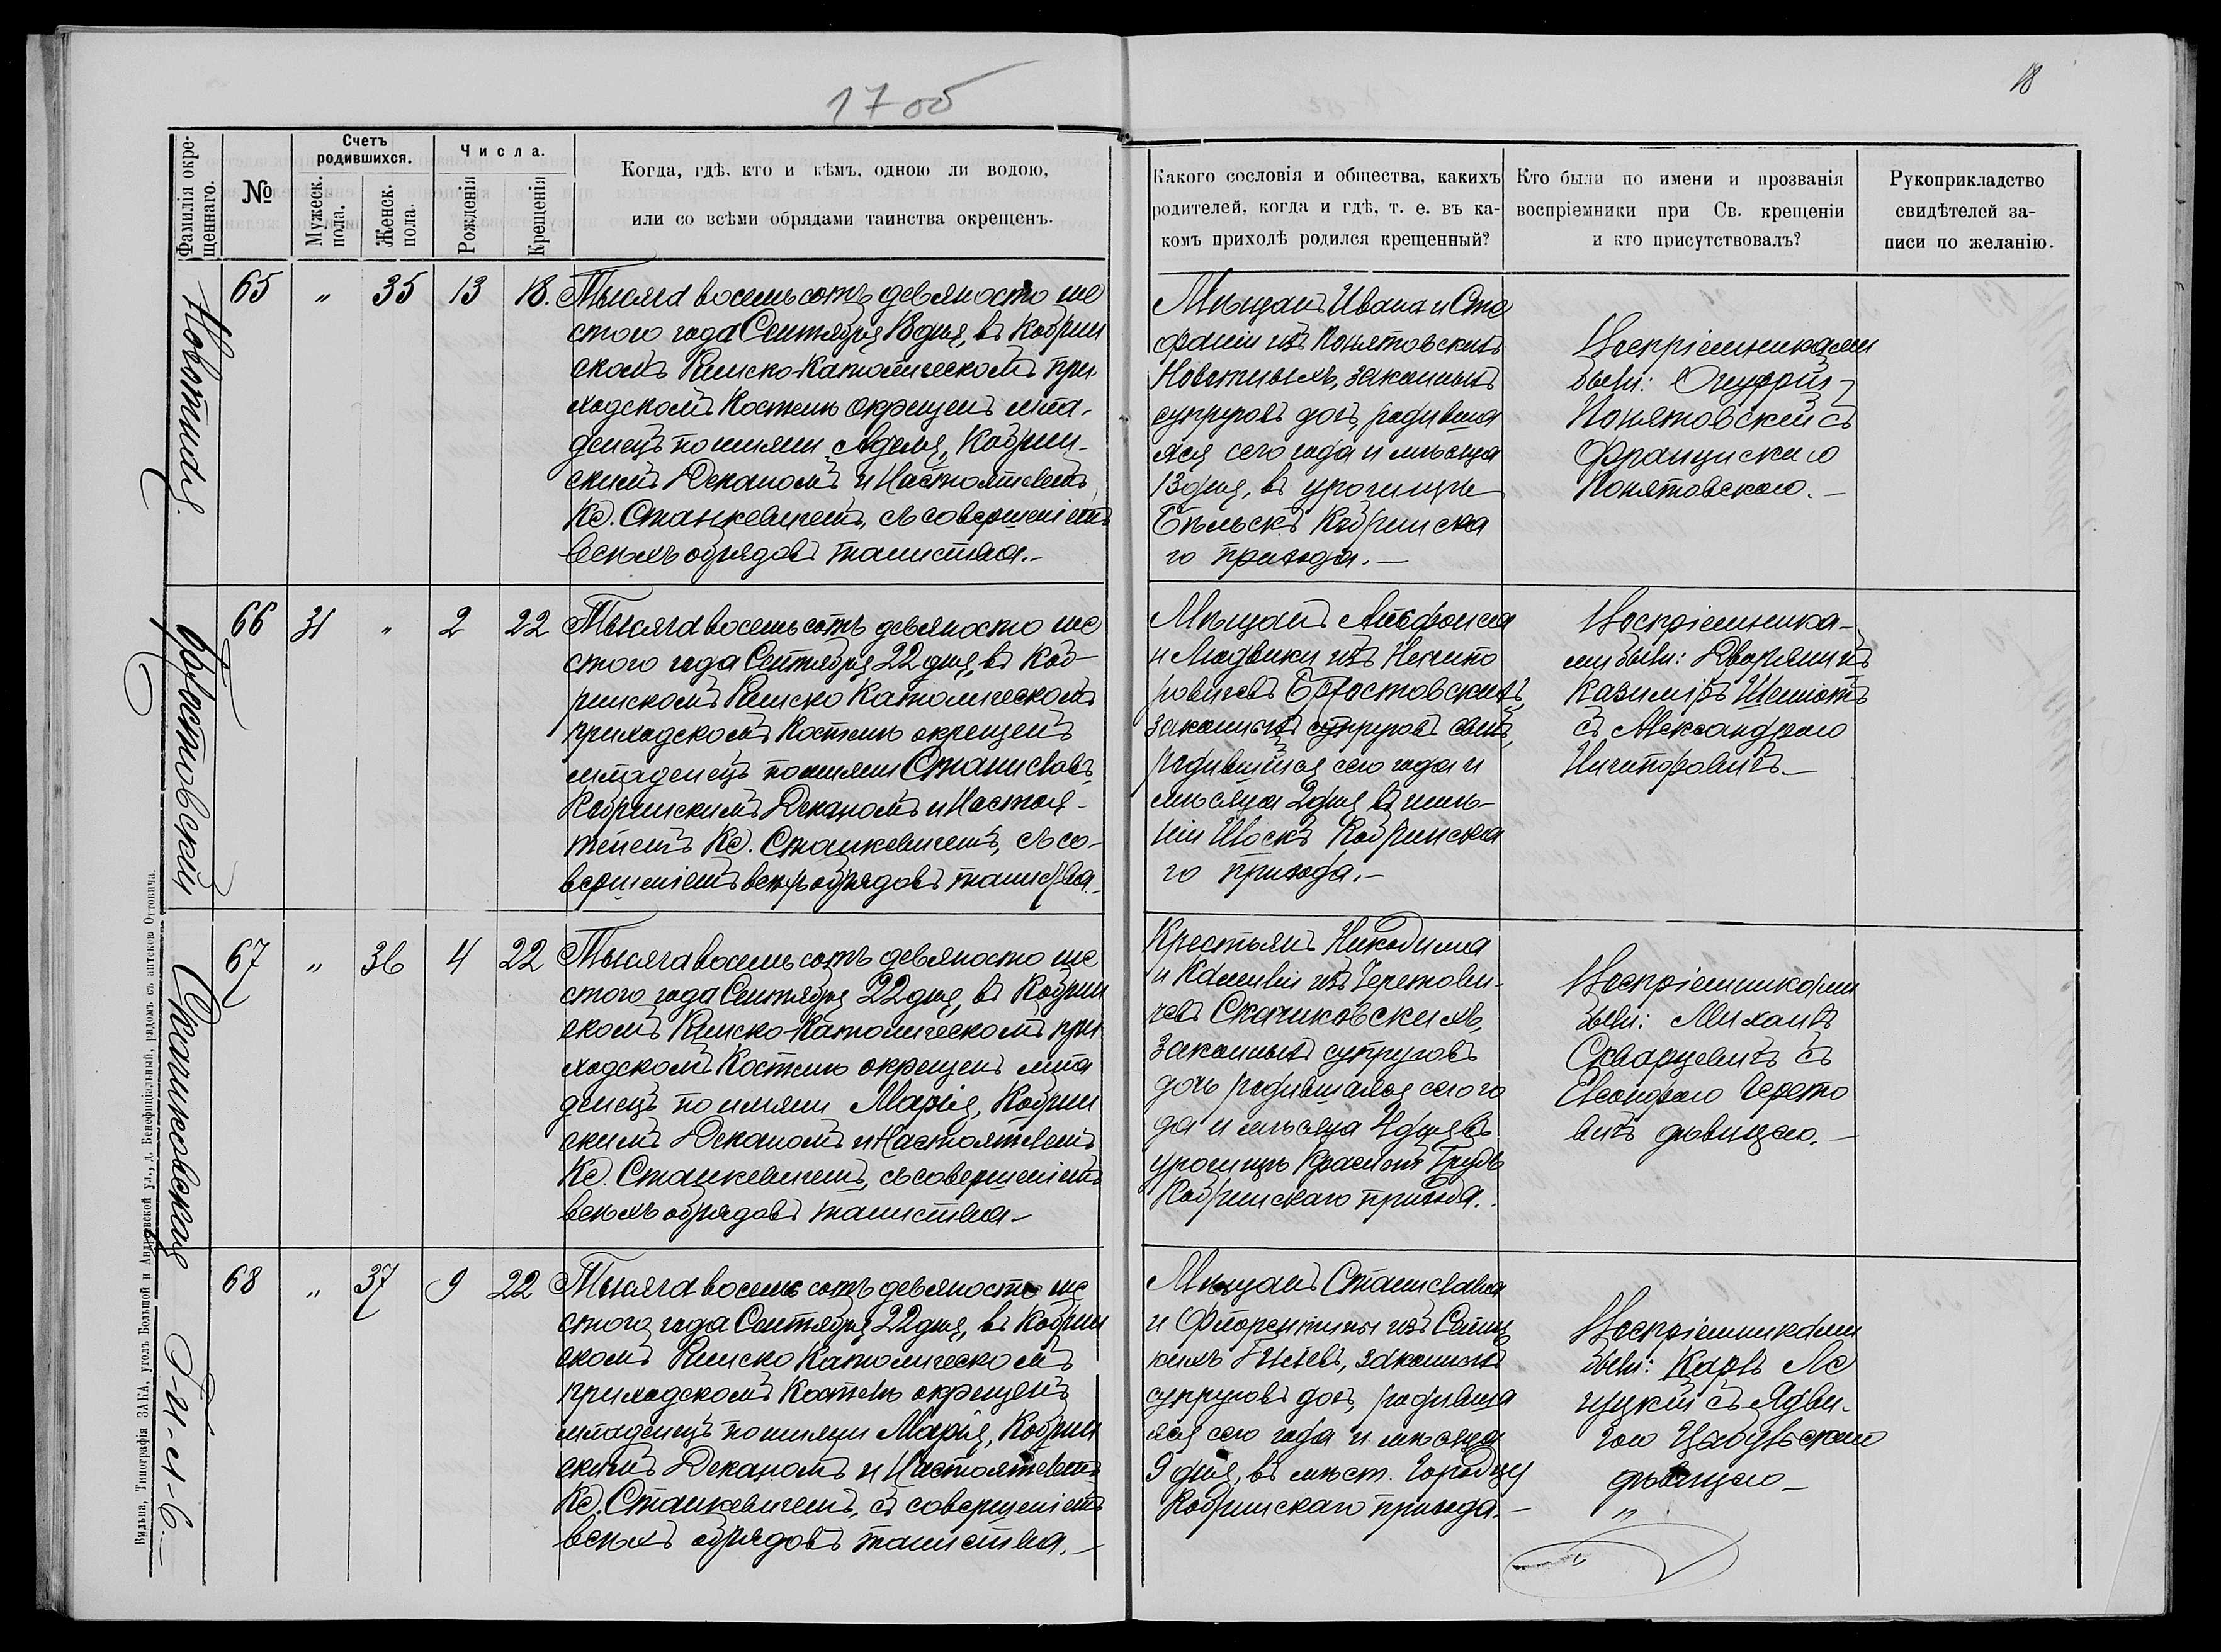 17 об
18
Фамилія окре-
щеннаго.
№
Счетъ
родившихся.
Мужеск.
пола.
Женск.
пола.
Числа.
Рожденія
Крещенія
Когда, гдѣ, кто и кѣмъ, одною ли водою,
или со всѣми обрядами таинства окрещенъ.
Какого сословія и общества, какихъ
родителей, когда и гдѣ, т. е. въ ка-
комъ приходѣ родился крещенный?
Кто были по имени и прозванія
воспріемники при Св. крещеніи
и кто присутствовалъ?
Рукоприкладство
свидѣтелей за-
писи по желанію.
65 " 35 13 18.
Тысяча восемьсотъ девяносто ше
стого года Сентября 18 дня, въ Кобрин
скомъ Римско-Католическомъ при-
ходскомъ Костелѣ окрещенъ мла-
денецъ по имяни Аделя, Кобрин-
скимъ Деканомъ и Настоятелемъ
Кс. Станкевичемъ, съ совершеніемъ
всѣхъ обрядовъ таинства.-
Мѣщанъ Ивана и Сте
фаніи изъ Понятовскихъ
законныхъ
супруговъ дочь, родивша
яся сего года и мѣсяца
13 дня, въ урочищѣ
Бѣльскъ Кобринска
го прихода.-
Воспріемниками
были: Онуфрій
Понятовскій съ
Францискаю
Понятовскою.-
66 31 " 2 22
Бростовскій
Тысяча восемьсотъ девяносто ше
стого года Сентября 22 дня, въ Коб-
ринскомъ Римско Католическомъ
приходскомъ Костелѣ окрещенъ
младенецъ по имяни Станиславъ,
Кобринскимъ Деканомъ и Настоя-
телемъ Кс. Станкевичемъ, съ со-
вершеніемъ всѣхъ обрядовъ таинства.-
Мѣщанъ Альфонса
и Людвики изъ Ничипо
ровичевъ Бростовскихъ,
законныхъ супруговъ сынъ,
родившійся сего года и
мѣсяца 2 дня въ имѣ-
ніи Кобринска
го прихода.-
Воспріемника-
ми были: Дворянинъ
Казиміръ
съ Александрою
Ничипоровичъ-
67 " 36 4 22
Скачиковская
Тысяча восемьсотъ девяносто ше
стого года Сентября 22 дня, въ Кобрин
скомъ Римско-Католическомъ при
ходскомъ Костелѣ окрещенъ мла
денецъ по имяни Марія, Кобрин
скимъ Деканомъ и Настоятелемъ
Кс. Станкевичемъ, съ совершеніемъ
всѣхъ обрядовъ таинства-
Крестьянъ Никодима
и Камиліи изъ Черетови-
чевъ Скачиковскихъ,
законныхъ супруговъ
дочь родившаяся сего го
да и мѣсяца 4 дня въ
урочищѣ Красный Грудъ
Кобринскаго прихода.
Воспріемниками
были: Михаилъ
Скварцевичъ съ
Черето
вичъ дѣвицею.-
68 " 37 9 22
Тысяча восемьсотъ девяносто ше
стого года Сентября 22 дня, въ Кобрин
скомъ Римско Католическомъ
приходскомъ Костелѣ окрещенъ
младенецъ по имяни Марія, Кобрин
скимъ Деканомъ и Настоятелемъ
Кс. Станкевичемъ, съ совершеніемъ
всѣхъ обрядовъ таинства.-
Мѣщанъ Станислава
и Флорентины изъ
законныхъ
супруговъ дочь, родивша
яся сего года и мѣсяца
9 дня, въ мѣст. Городцу
Кобринскаго прихода.-
Воспріемниками
были: Карлъ
съ Ядви-
гою Цыбульскою
дѣвицею-
"
Вильна, Типографія ЗАКА, уголъ Большой и Андреевской ул., д. Бенефиціальный, рядомъ съ аптекою Оттовича.